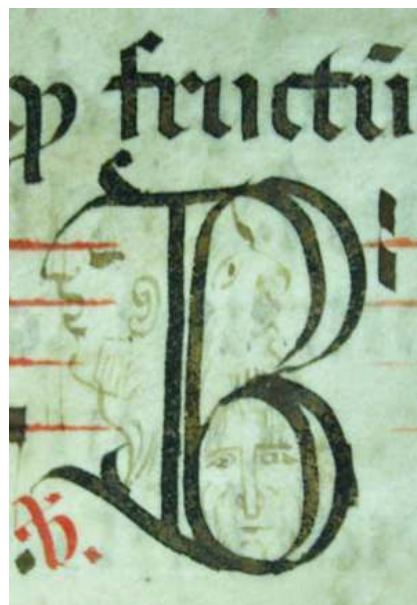 ꝑ fructū
B
℣.